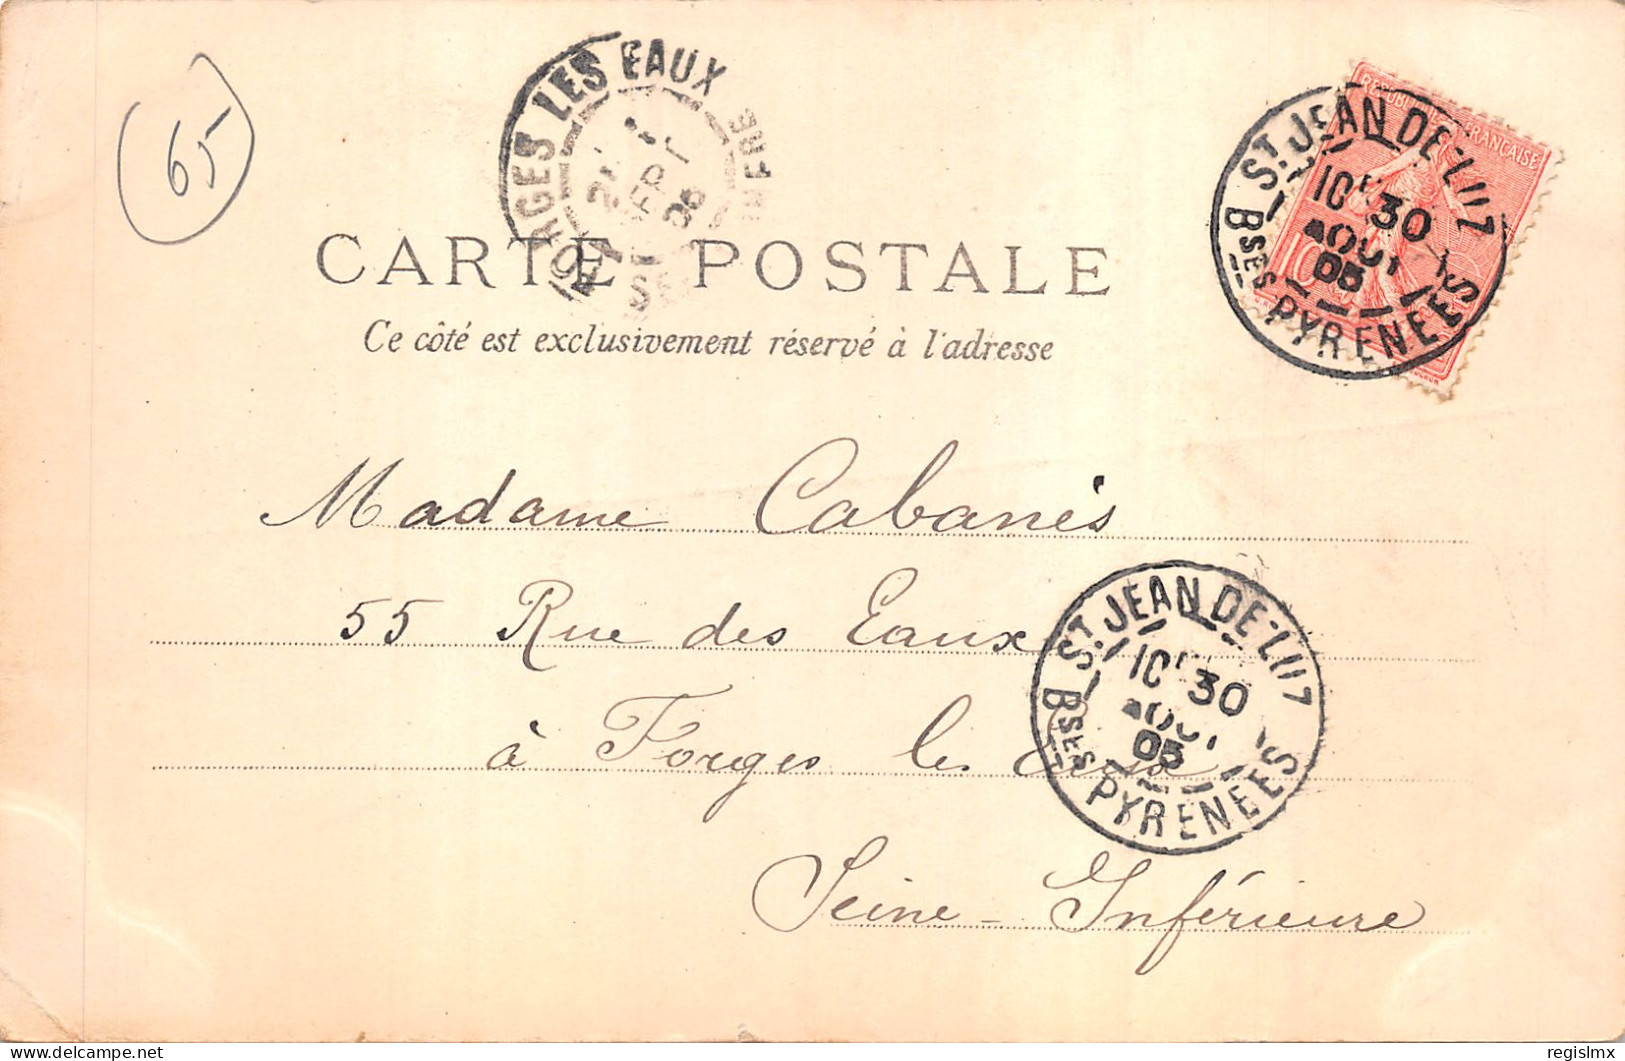 65
FORGES LES EAUX
SEPT
CARTE POSTALE
Ce côté est exclusivement réservé à l'adresse
REPUBLIQUE FRANÇAISE
10
ST JEAN-DE-LUZ
30
AOUT
05
BSES PYRENEES
Madame Cabanès
55 Rue des Eaux
à Forges les Eaux
Seine-Inférieure
ST JEAN-DE-LUZ
30
AOUT
05
BSES PYRENEES
delcampe.net
regislmx